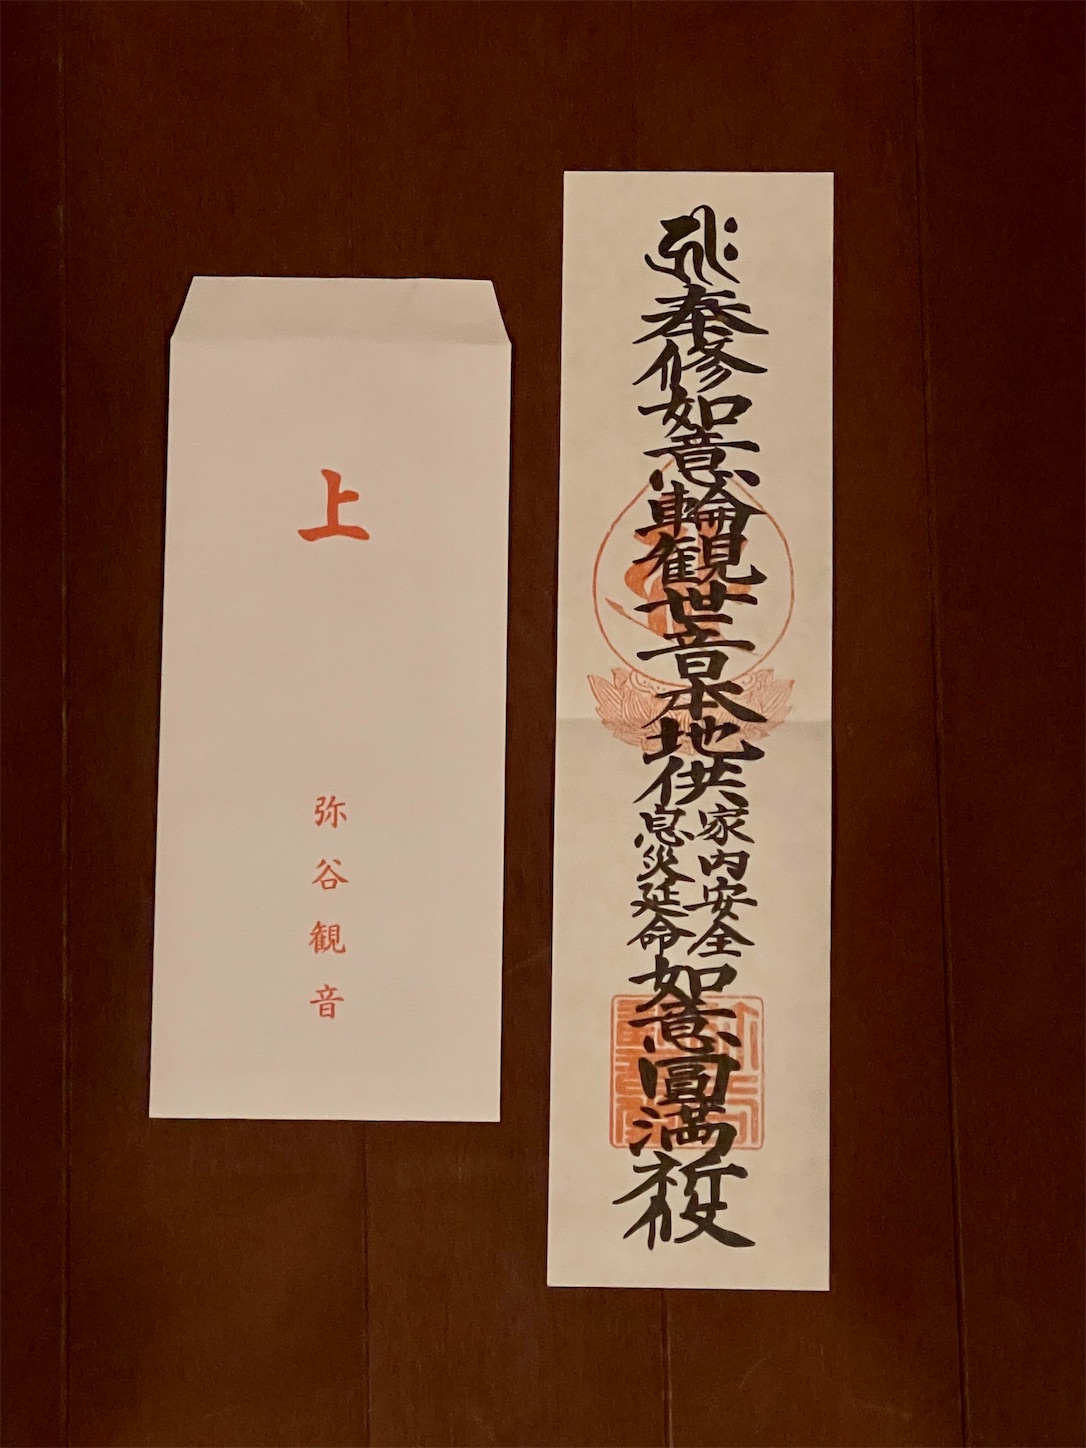 上
弥谷観音
奉修如意輪観世音本地供
家内安全
息災延命
如意圓満祈攸